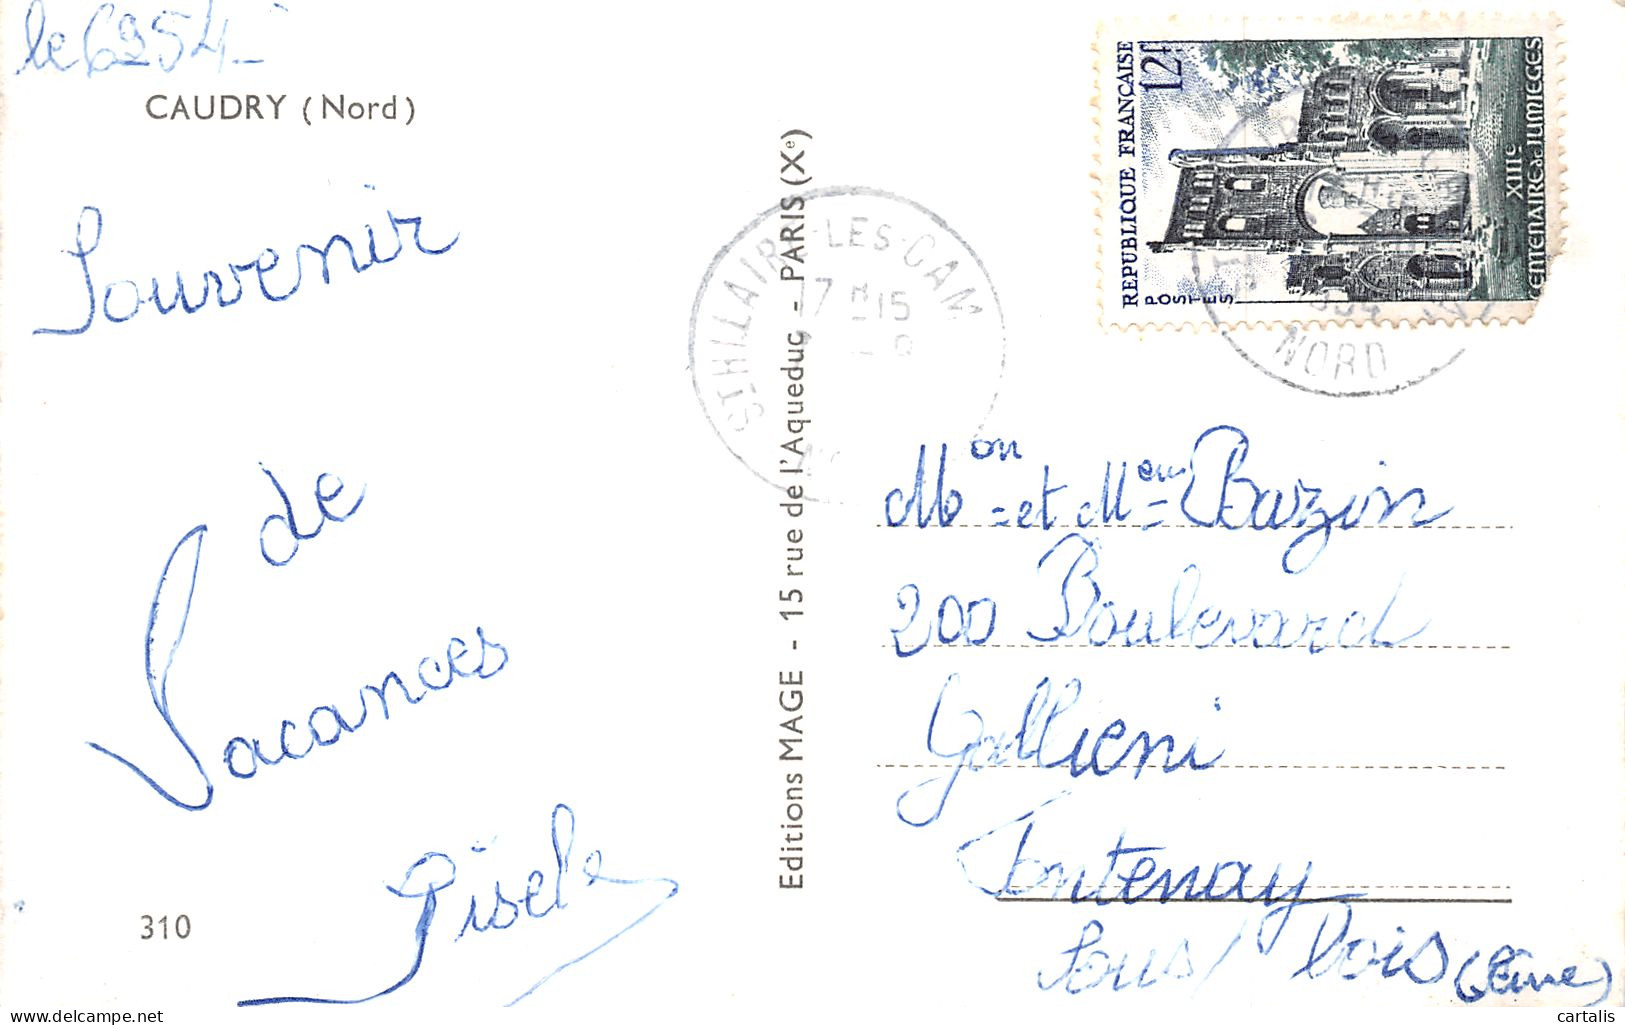 le 6 9 54
CAUDRY (Nord)
Souvenir
de
Vacances
Gisèle
310
Editions MAGE - 15 rue de l'Aqueduc - PARIS (Xe)
ST HILAIRE-LES-CAM
17 H 15
REPUBLIQUE FRANÇAISE
12f
POSTES
XIIIe
CENTENAIRE de JUMIEGES
NORD
Mon et Mem Bazin
200 Boulevard
Gallieni
Fontenay
Sous / bois (Seine)
cartalis